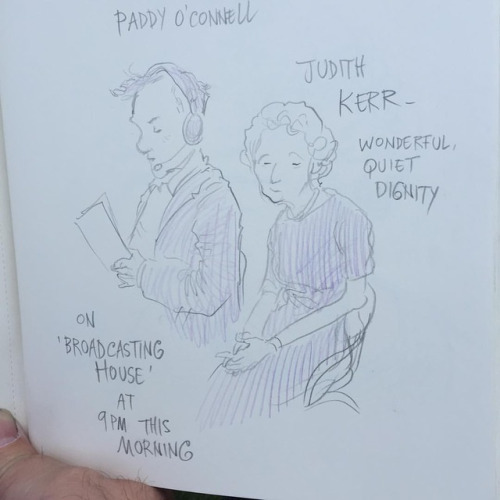 PADDY O'CONNELL
JUDITH
KERR -
WONDERFUL,
QUIET
DIGNITY
ON
'BROADCASTING
HOUSE'
AT
9PM THIS
MORNING